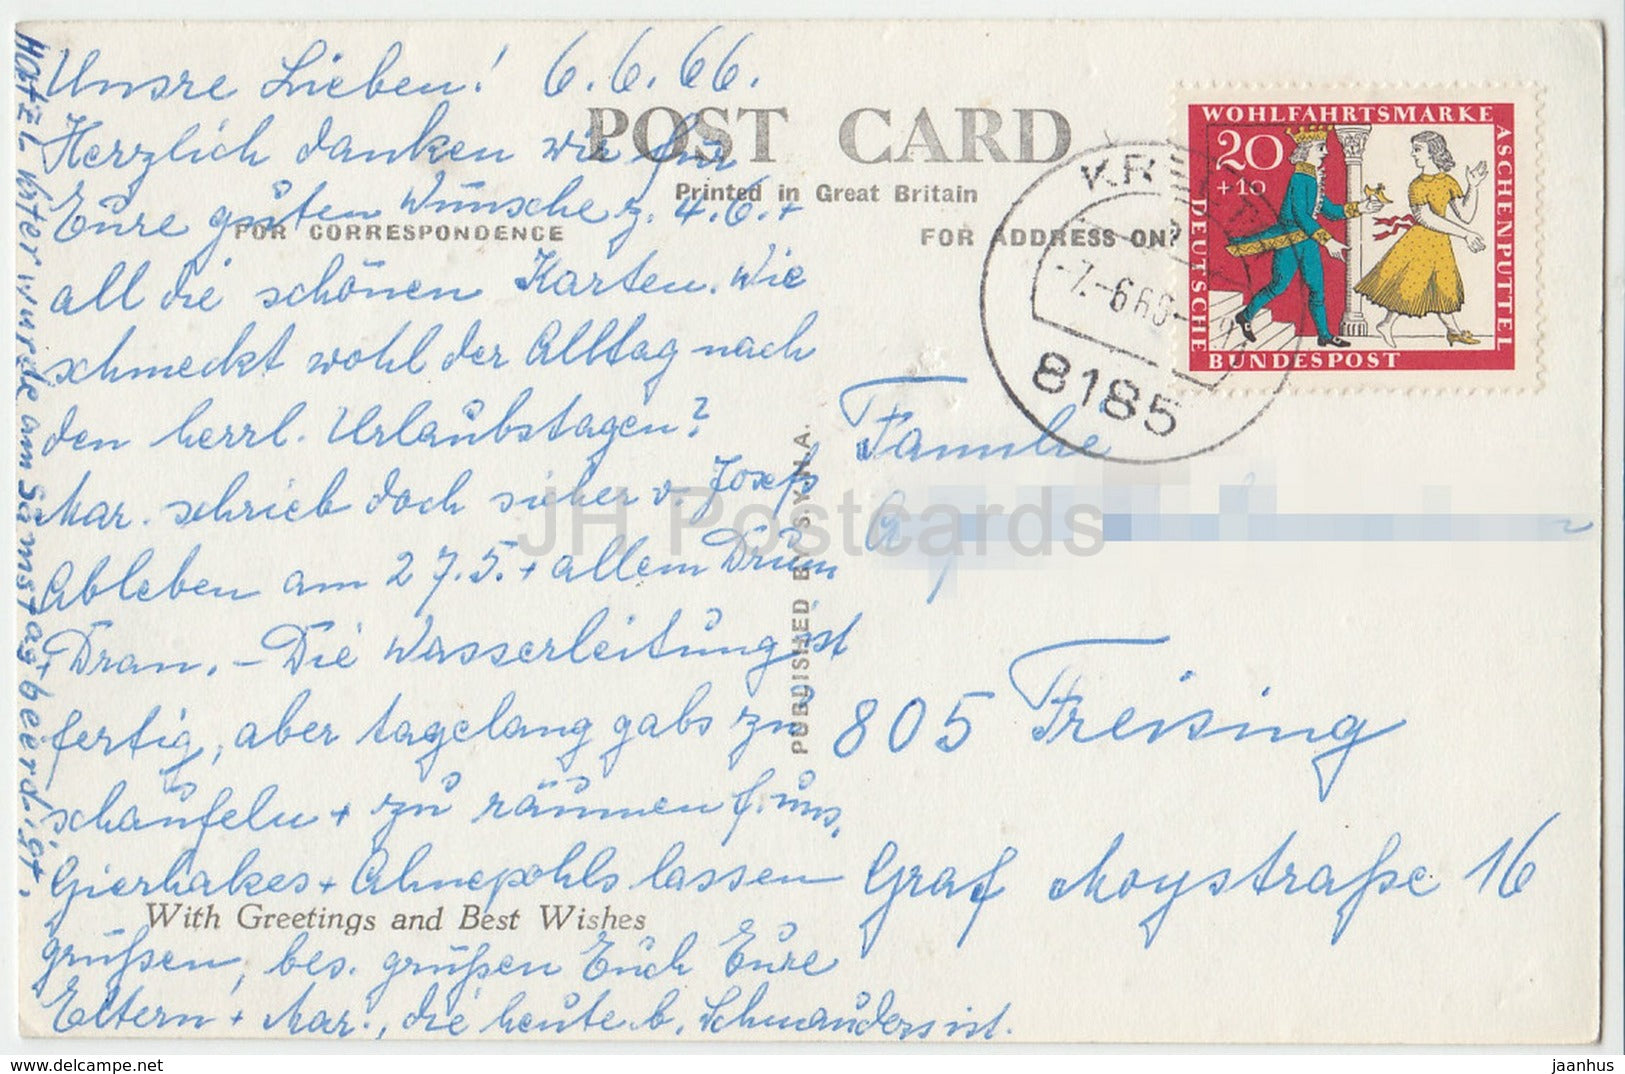 Unsre Lieben! 6.6.66.
Herzlich danken wir für
Eure guten Wünsche z. 4.6. +
all die schönen Karten. Wie
schmeckt wohl der Alltag nach
den herrl. Urlaubstagen?
Mar. schrieb doch sicher v. Josefs
Ableben am 27.5. + allem Drum
+ Dran. – Die Wasserleitung ist
fertig, aber tagelang gabs zu
schaufeln + zu räumen f. uns.
Gierhakes + Ahnepohls lassen
grüßen, bes. grüßen Euch Eure
Eltern + Mar., die heute b. Schmauders ist.
vater wurde am Samstag beerdigt.
POST CARD
Printed in Great Britain
FOR CORRESPONDENCE
FOR ADDRESS ONLY
PUBLISHED BY S.Y.N.A.
With Greetings and Best Wishes
WOHLFAHRTSMARKE
ASCHENPUTTEL
20
+10
DEUTSCHE
BUNDESPOST
-7.-6.66-
8185
Familie
805 Freising
Graf Moystraße 16
JH Postcards
delcampe.net
jaanhus